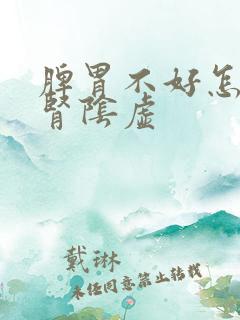 脾胃不好怎
腎陰虛
戴琳
未经同意禁止转载